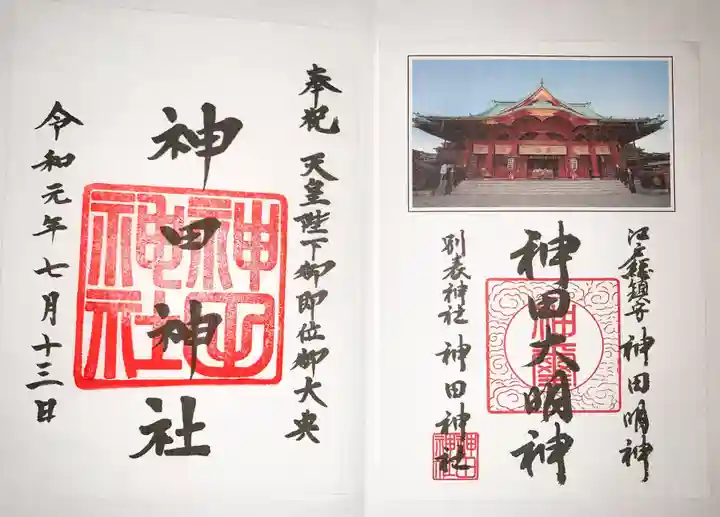 奉祝 天皇陛下御即位御大典
神田神社
神田神社
令和元年七月十三日
江戸総鎮守 神田明神
神田大明神
別表神社 神田神社